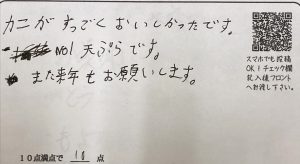 カニがすっごくおいしかったです。
No1 天ぷらです。
また来年もお願いします。
スマホでも投稿
OK!チェック欄
記入後フロント
へお渡し下さい。
10点満点で 10 点